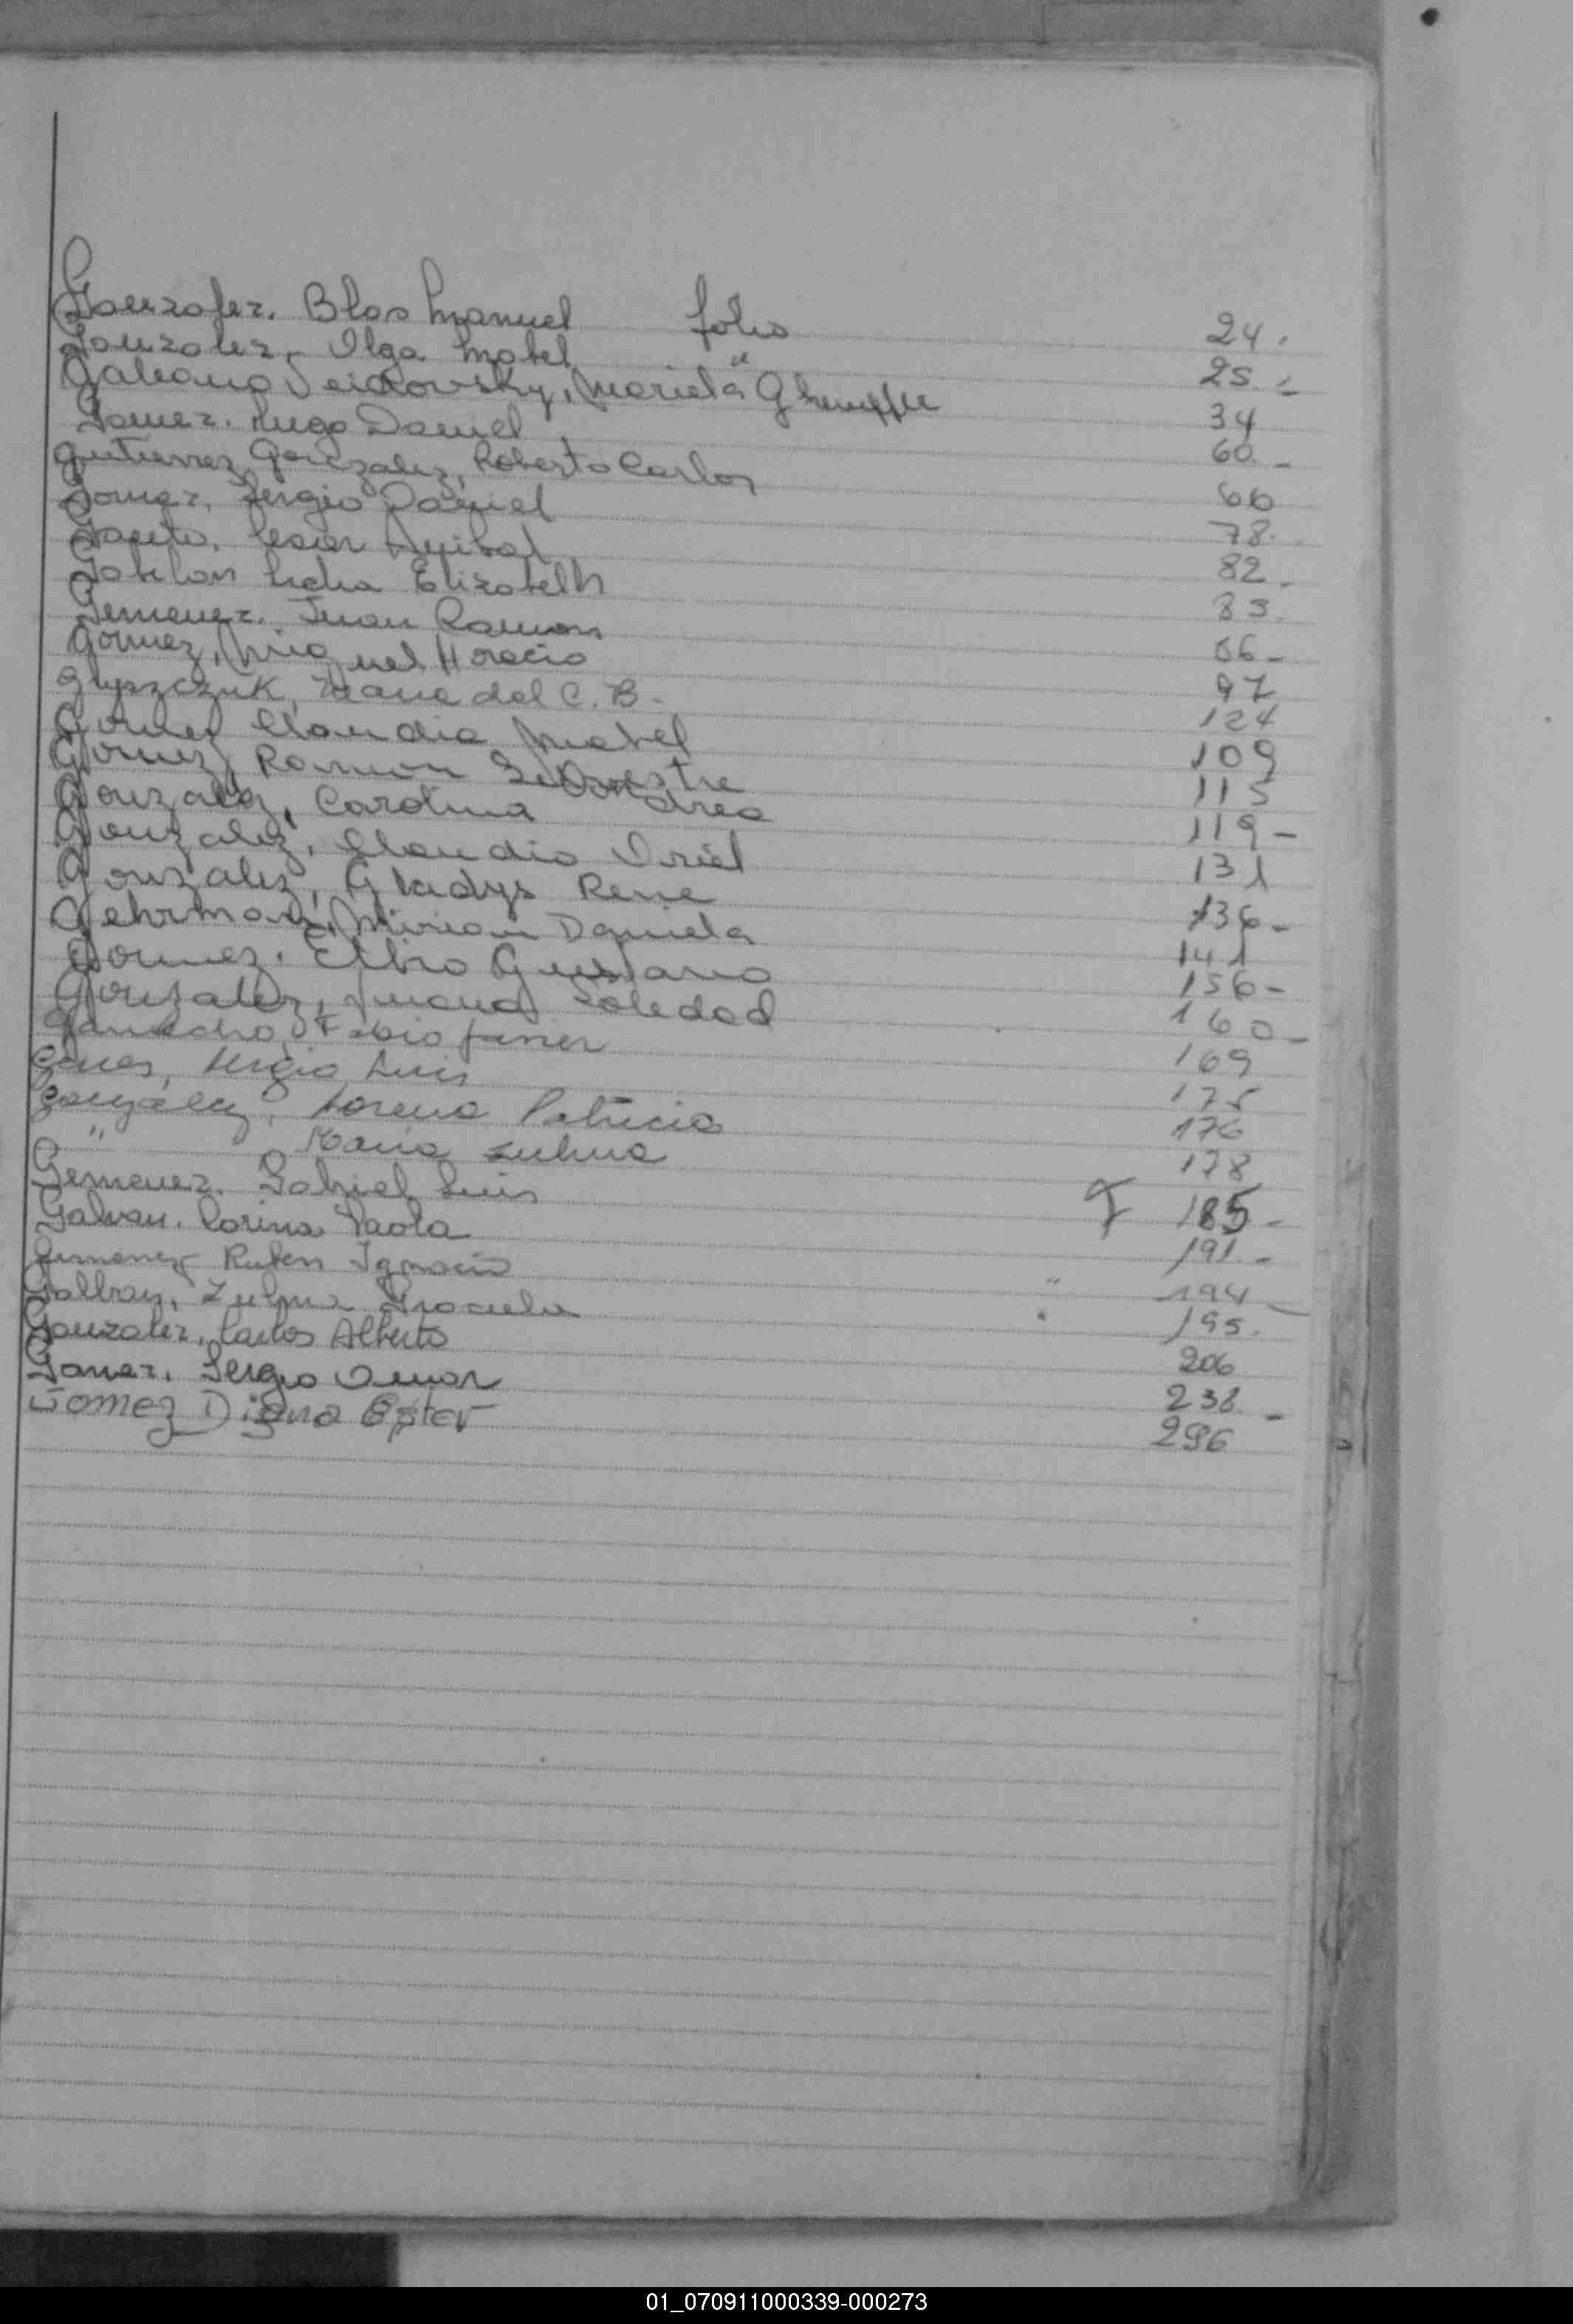 Gonzalez. Blas Manuel folio 24.
Gonzalez, Olga Mabel " 25.-
Galeano Seidkowsky, Mariela 34
Gomez. Hugo Daniel 60.-
Gutierrez Gonzalez, Roberto Carlos 66
Gomez, Sergio Daniel 78.
Cesar Anibal 82.
Lidia Elizabeth 85.
Gemenez. Juan Ramon 86-
Gomez, Miguel Horacio 97
Gryszczuk, Maria del C. B. - 124
Gomez Claudia Mabel 109
Gomez, Ramon Silvestre 115
Gonzalez, Carolina Andrea 119-
Gonzalez, Claudio Oriel 131
Gonzalez, Gladys Rene 136-
Gehrmann, Mirian Daniela 141
Gomez. Elbio Gustavo 156-
Gonzalez, Juana Soledad 160-
Fabio Javier 169
Sergio Luis 175
Gonzalez, Lorena Patricia 176
" Maria Zulma 178
Gemenez. Gabriel Luis 185-
Galvan. Corina Paola 191.-
Gimenez Ruben Ignacio " 194-
Galban, Zulma Graciela " 195.
Gonzalez, Carlos Alberto 206
Gomez. Sergio Omar 238.-
Gomez Digna Ester 296
01_070911000339-000273